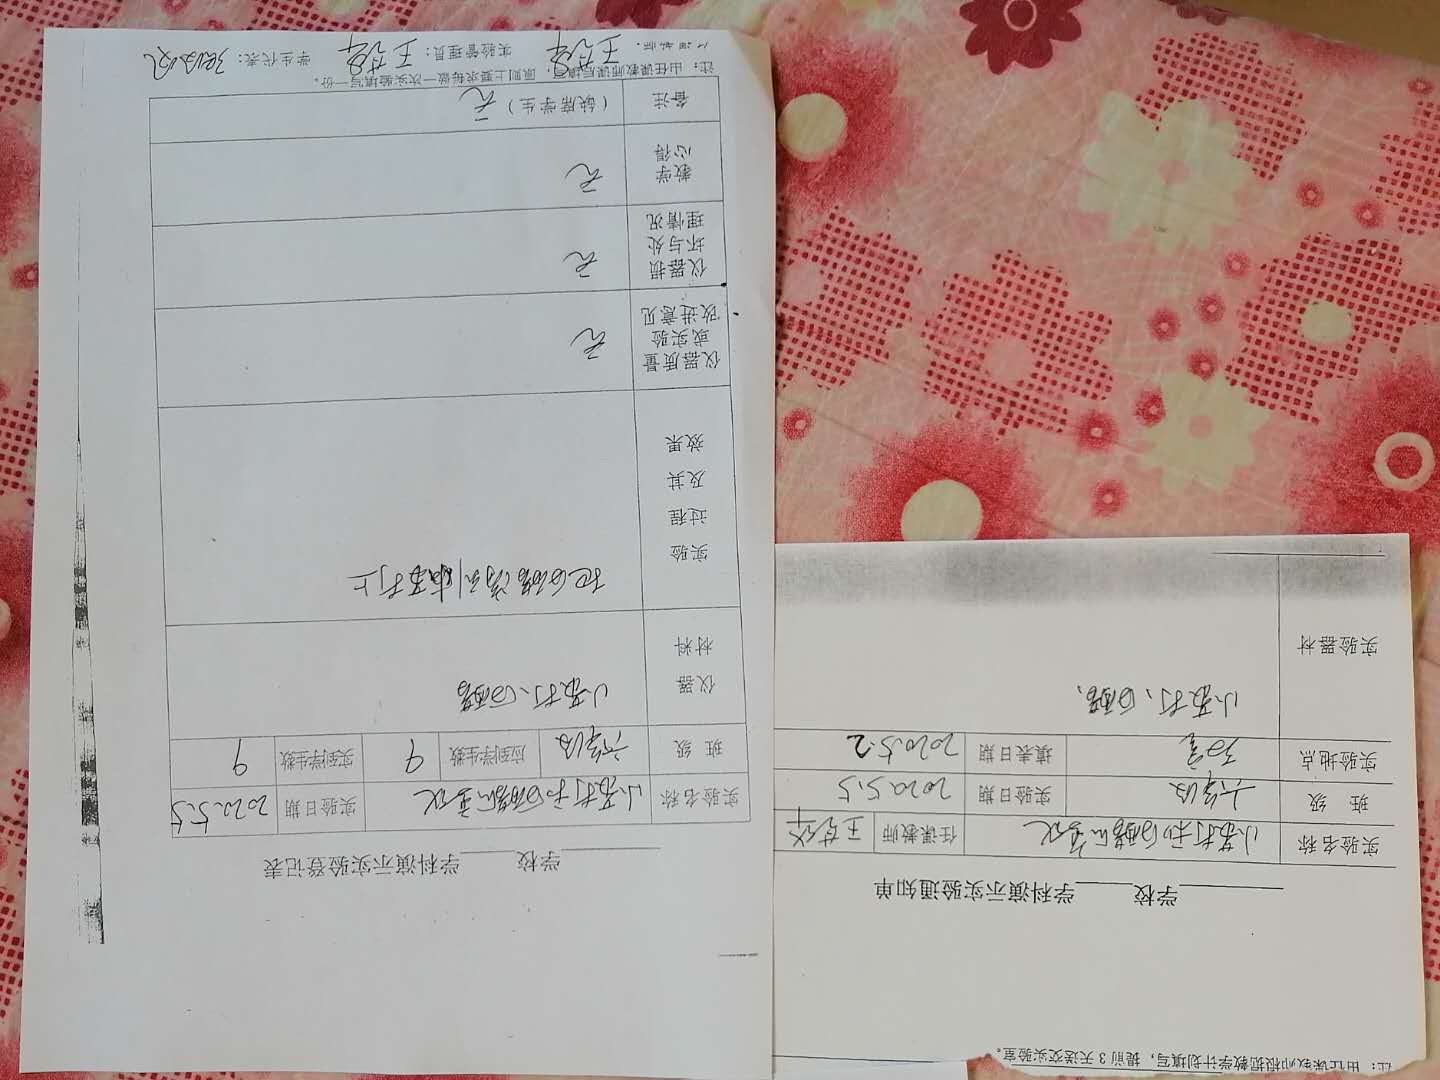 学校 学科演示实验登记表
实验名称 小苏打和白醋的变化 实验日期 2020.5.5
班 级 六年级 应到学生数 9 实到学生数 9
仪器材料 小苏打、白醋
实验过程及其效果 把白醋滴到小苏打上
仪器质量或实验改进意见 无
仪器损坏与处理情况 无
教学心得 无
备注 (缺席学生) 无
注:由任课教师课后填写,原则上要求每做一次实验填写一份。
实验管理员: 学生代表:
学校 学科演示实验通知单
实验名称 小苏打和白醋的变化 任课教师
班 级 六年级 实验日期 2020.5.5
实验地点 教室 填表日期 2020.5.2
实验器材 小苏打、白醋、
注:由任课教师根据教学计划填写,提前3天送交实验室。